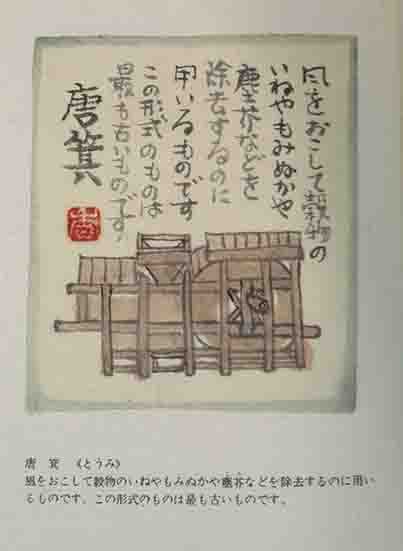 風をおこして穀物の
いねやもみぬかや
塵芥などを
除去するのに
用いるものです
この形式のものは
最も古いものです。
唐箕
唐 箕 《とうみ》
風をおこして穀物のいねやもみぬかや塵芥などを除去するのに用い
るものです。この形式のものは最も古いものです。